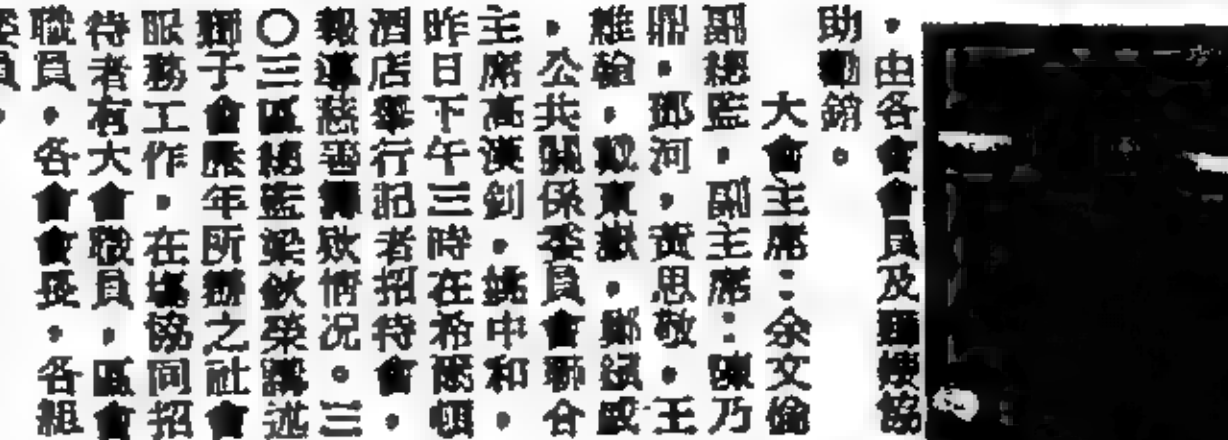 ・由各會會員及職嫂協
助勸銷。
大會主席：余文倫
副總監・副主席：陳乃
鼎・鄧河・黃思敬・王
維綸・戴東嶽・鄭斌威
・公共關係委員會聯合
主席高漢釗・姚中和・
昨日下午三時在希爾頓
酒店舉行記者招待會・
報導慈善獅歌情況。三
〇三區總監梁欽榮講述
獅子會歷年所辦之社會
服務工作・在場協同招
待者有大會職員・區會
職員・各會會長・各組
委員・